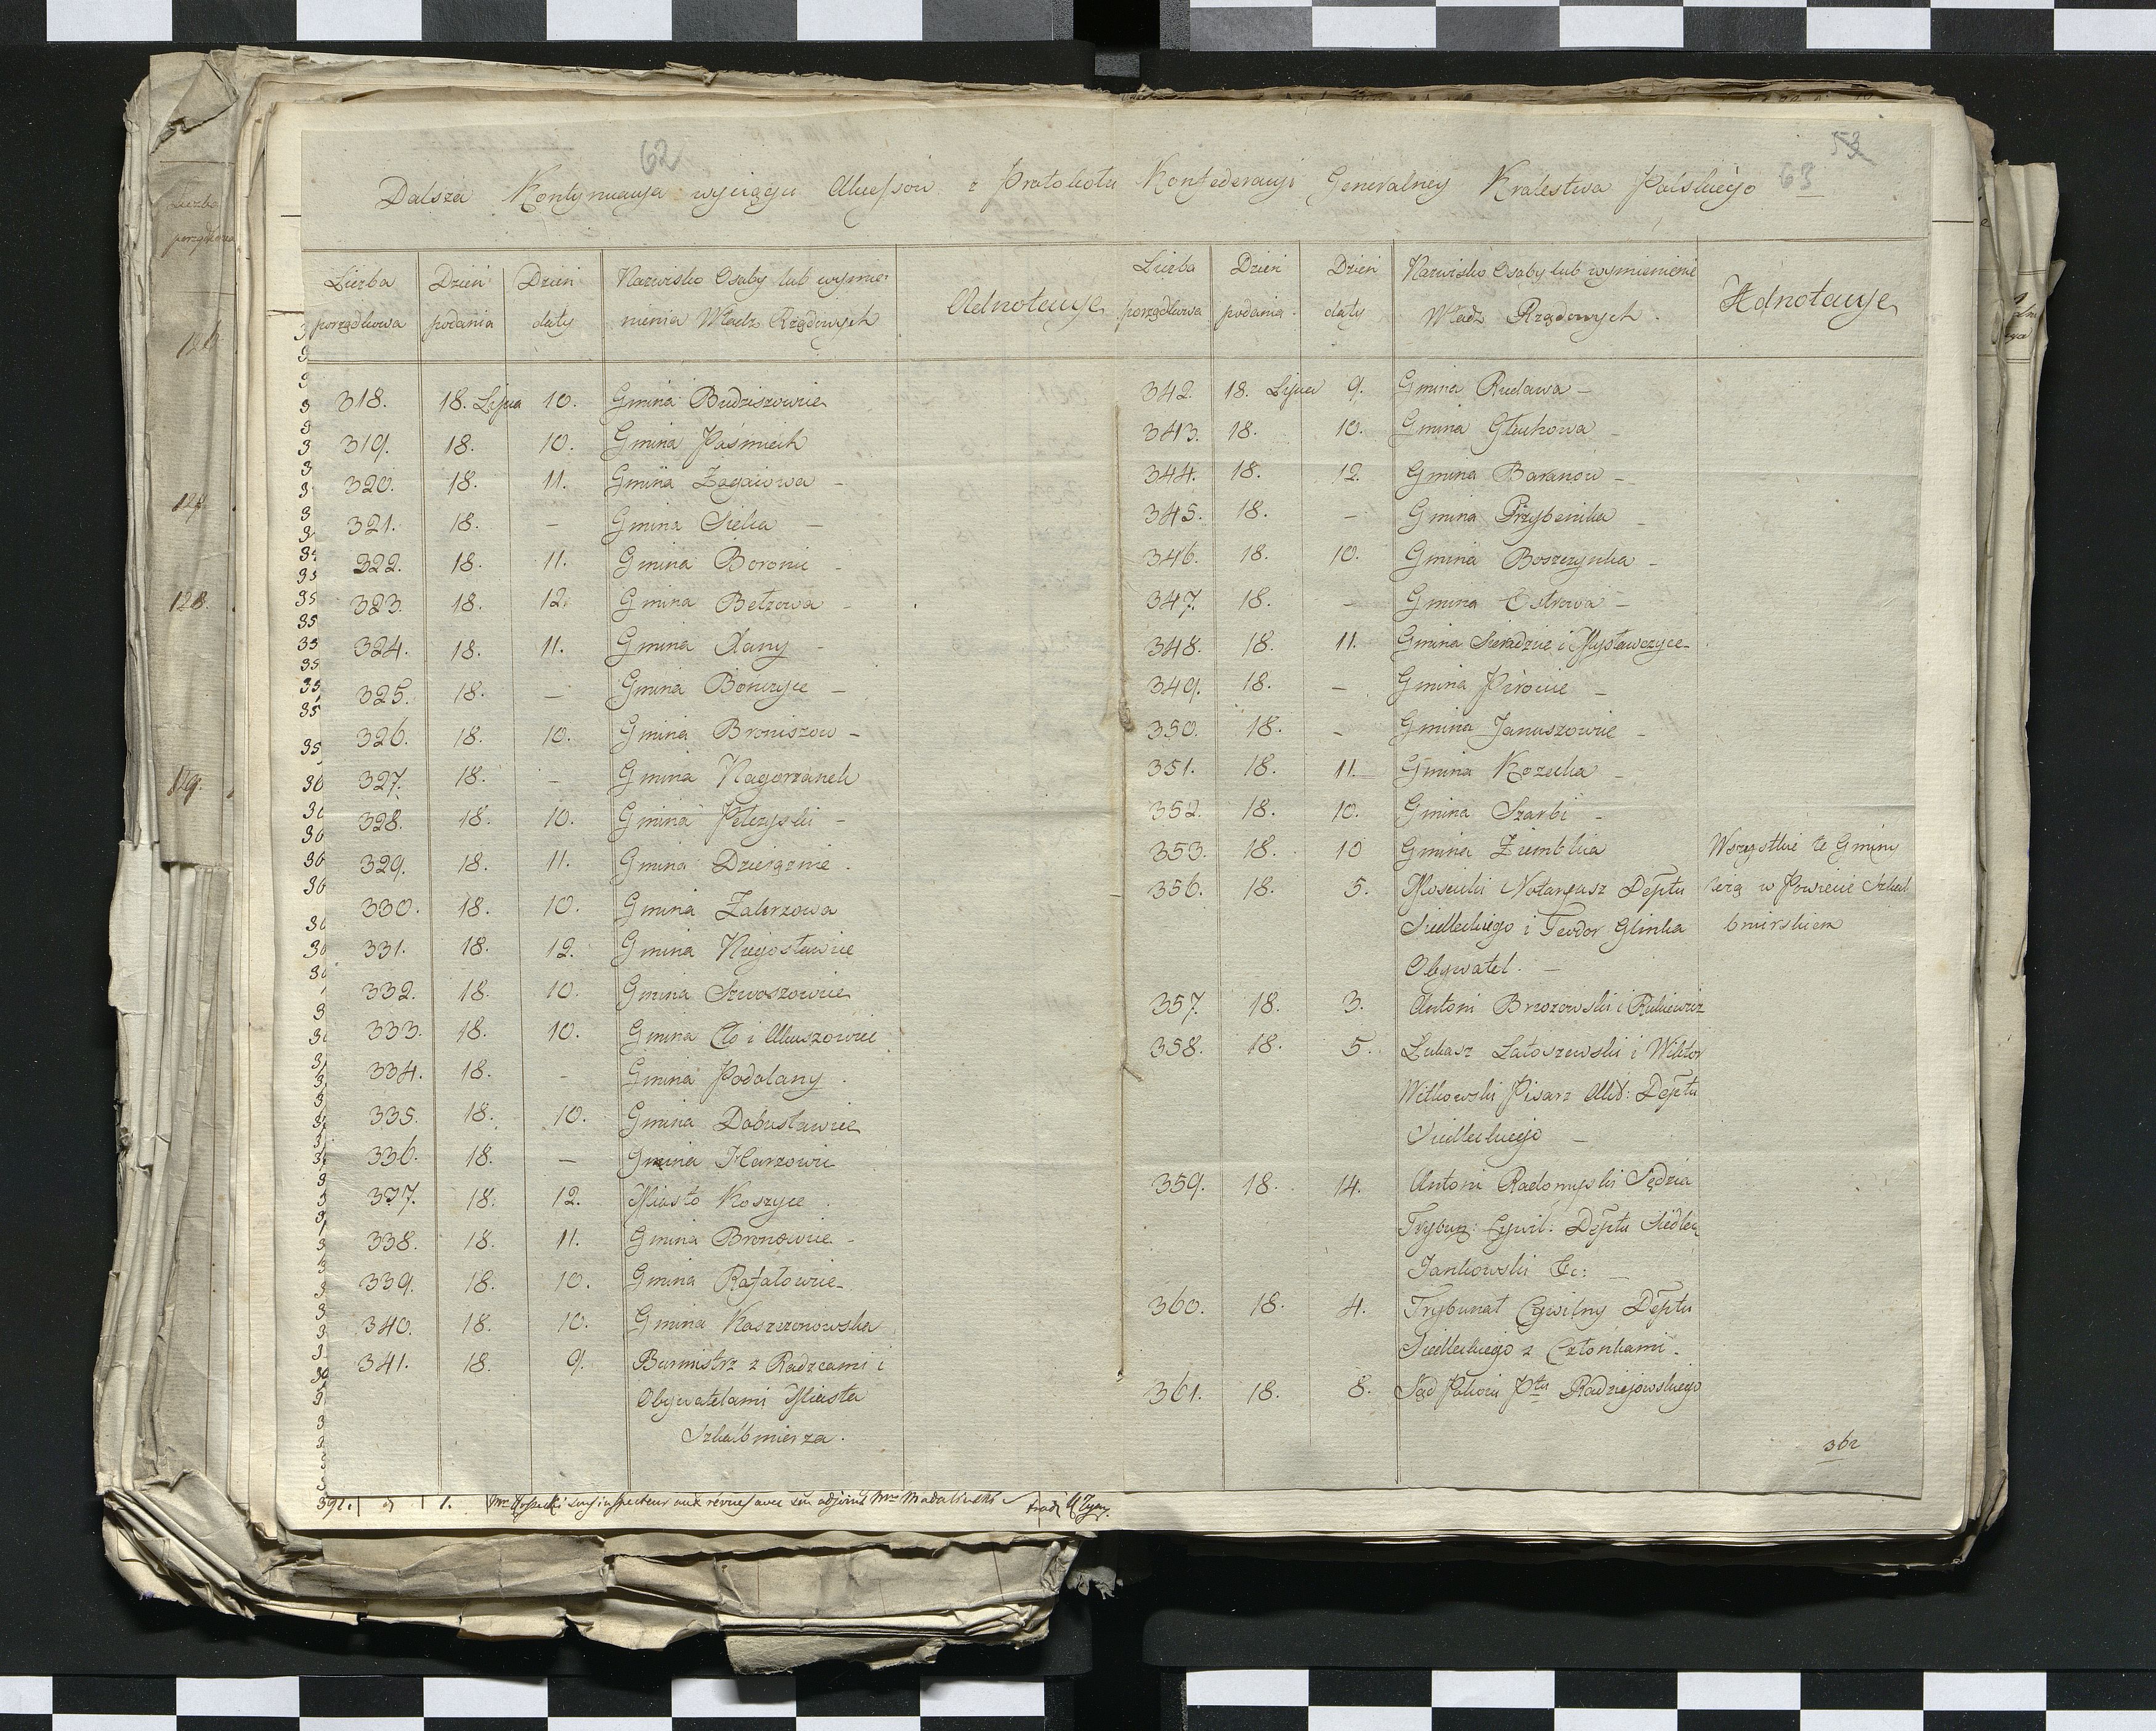 62
53
63
Dalsza Kontynuacya wyciągu Akcessów z Protokółu Konfederacyi Generalney Krolestwa Polskiego
Liczba porządkowa | Dzień podania | Dzień daty | Nazwisko Osoby lub wymie-
nienia Władz Rządowych | Adnotacye
318. 18. Lipca 10. Gmina Budziszowice
319. 18. 10. Gmina Paśmiech
320. 18. 11. Gmina Zagaiowa –
321. 18. – Gmina Sielca –
322. 18. 11. Gmina Boronic –
323. 18. 12. Gmina Betzowa –
324. 18. 11. Gmina Xany –
325. 18. – Gmina Bonczyce –
326. 18. 10. Gmina Broniszow –
327. 18. – Gmina Nagorzanek
328. 18. 10. Gmina Pełczyski –
329. 18. 11. Gmina Dzierążnie.
330. 18. 10. Gmina Zakrzowa
331. 18. 12. Gmina Niegosławice
332. 18. 10. Gmina Szwoszowice
333. 18. 10. Gmina Cło i Akuszowice
334. 18. – Gmina Podolany.
335. 18. 10. Gmina Dobusławice
336. 18. – Gmina Harzowic
337. 18. 12. Miasto Koszyce.
338. 18. 11. Gmina Bronowice –
339. 18. 10. Gmina Rafałowice –
340. 18. 10. Gmina Kaszczonowska
341. 18. 9. Burmistrz z Radzcami i
Obywatelami Miasta
Szkalbmierza.
Liczba porządkowa | Dzień podania | Dzień daty | Nazwisko Osoby lub wymienienie
Władz Rządowych. | Adnotacye
342. 18. Lipca 9. Gmina Rudawa –
343. 18. 10. Gmina Głuchowa –
344. 18. 12. Gmina Baranow –
345. 18. – Gmina Przybenika –
346. 18. 10. Gmina Boszczynka –
347. 18. – Gmina Ostrowa –
348. 18. 11. Gmina Sieradzice i Mysławczyce –
349. 18. – Gmina Pirocice –
350. 18. – Gmina Januszowice –
351. 18. 11. Gmina Kozecka –
352. 18. 10. Gmina Szarbi –
353. 18. 10 Gmina Ziemblica Wszystkie te Gminy
356. 18. 5. Mościcki Notaryusz Deptu leżą w Powiecie Szkal
Siedleckiego i Teodor Glinka bmirskiem
Obywatel. –
357. 18. 3. Antoni Brzozowski i Rukiewicz
358. 18. 5. Łukasz Łatoszewski i Wiktor
Witkowski Pisarz Akt: Deptu
Siedleckiego –
359. 18. 14. Antoni Radomyski Sędzia
Trybun: Cywil: Deptu Siedlec
Jankowski &c: –
360. 18. 4. Trybunał Cywilny Deptu
Siedleckiego z Członkami.
361. 18. 8. Sąd Pokoiu Ptu Radziejowskiego
362
128.
129.
392. 1. sous inspecteur aux revues avec son adjoint Mr Madalinski